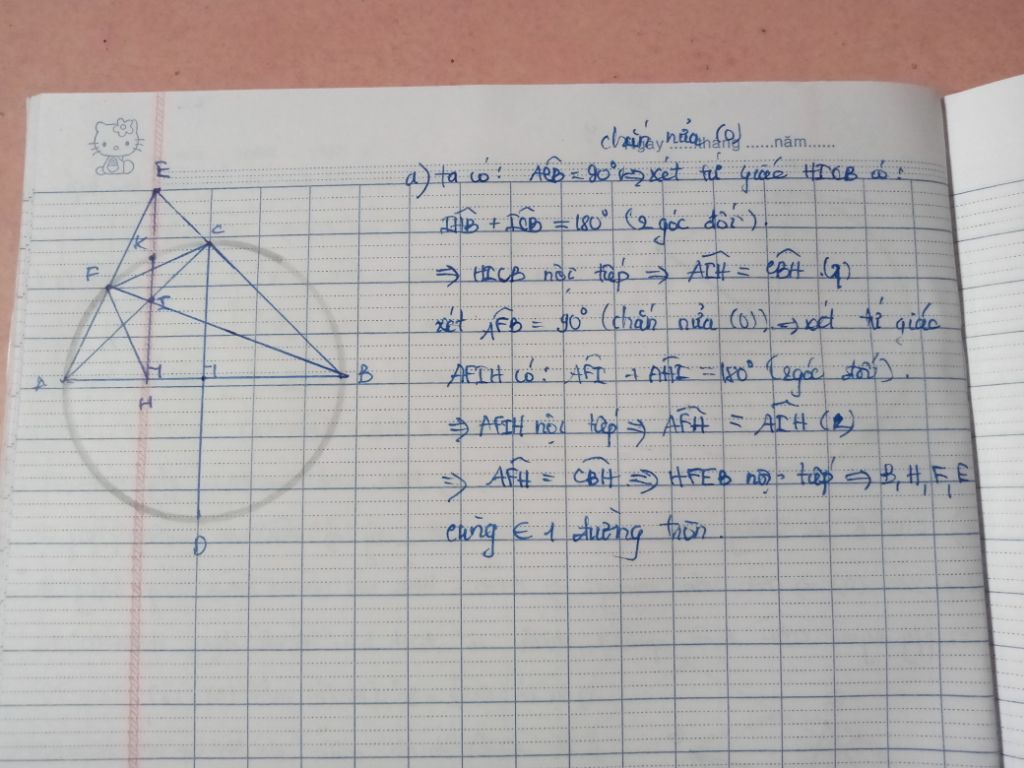 chắn nửa (O)
Ngày ......tháng ......năm......
a) ta có: ACB = 90° => xét tứ giác HICB có:
IHB + ICB = 180° (2 góc đối).
=> HICB nội tiếp => AIH = CBH (1)
xét AFB = 90° (chắn nửa (O)) => xét tứ giác
AFIH có: AFI + AHI = 180° (2 góc đối).
=> AFIH nội tiếp => AFH = AIH (2)
=> AFH = CBH => HFEB nội tiếp => B, H, F, E
cùng ∈ 1 đường tròn.
E
K
C
F
I
A
B
H
D